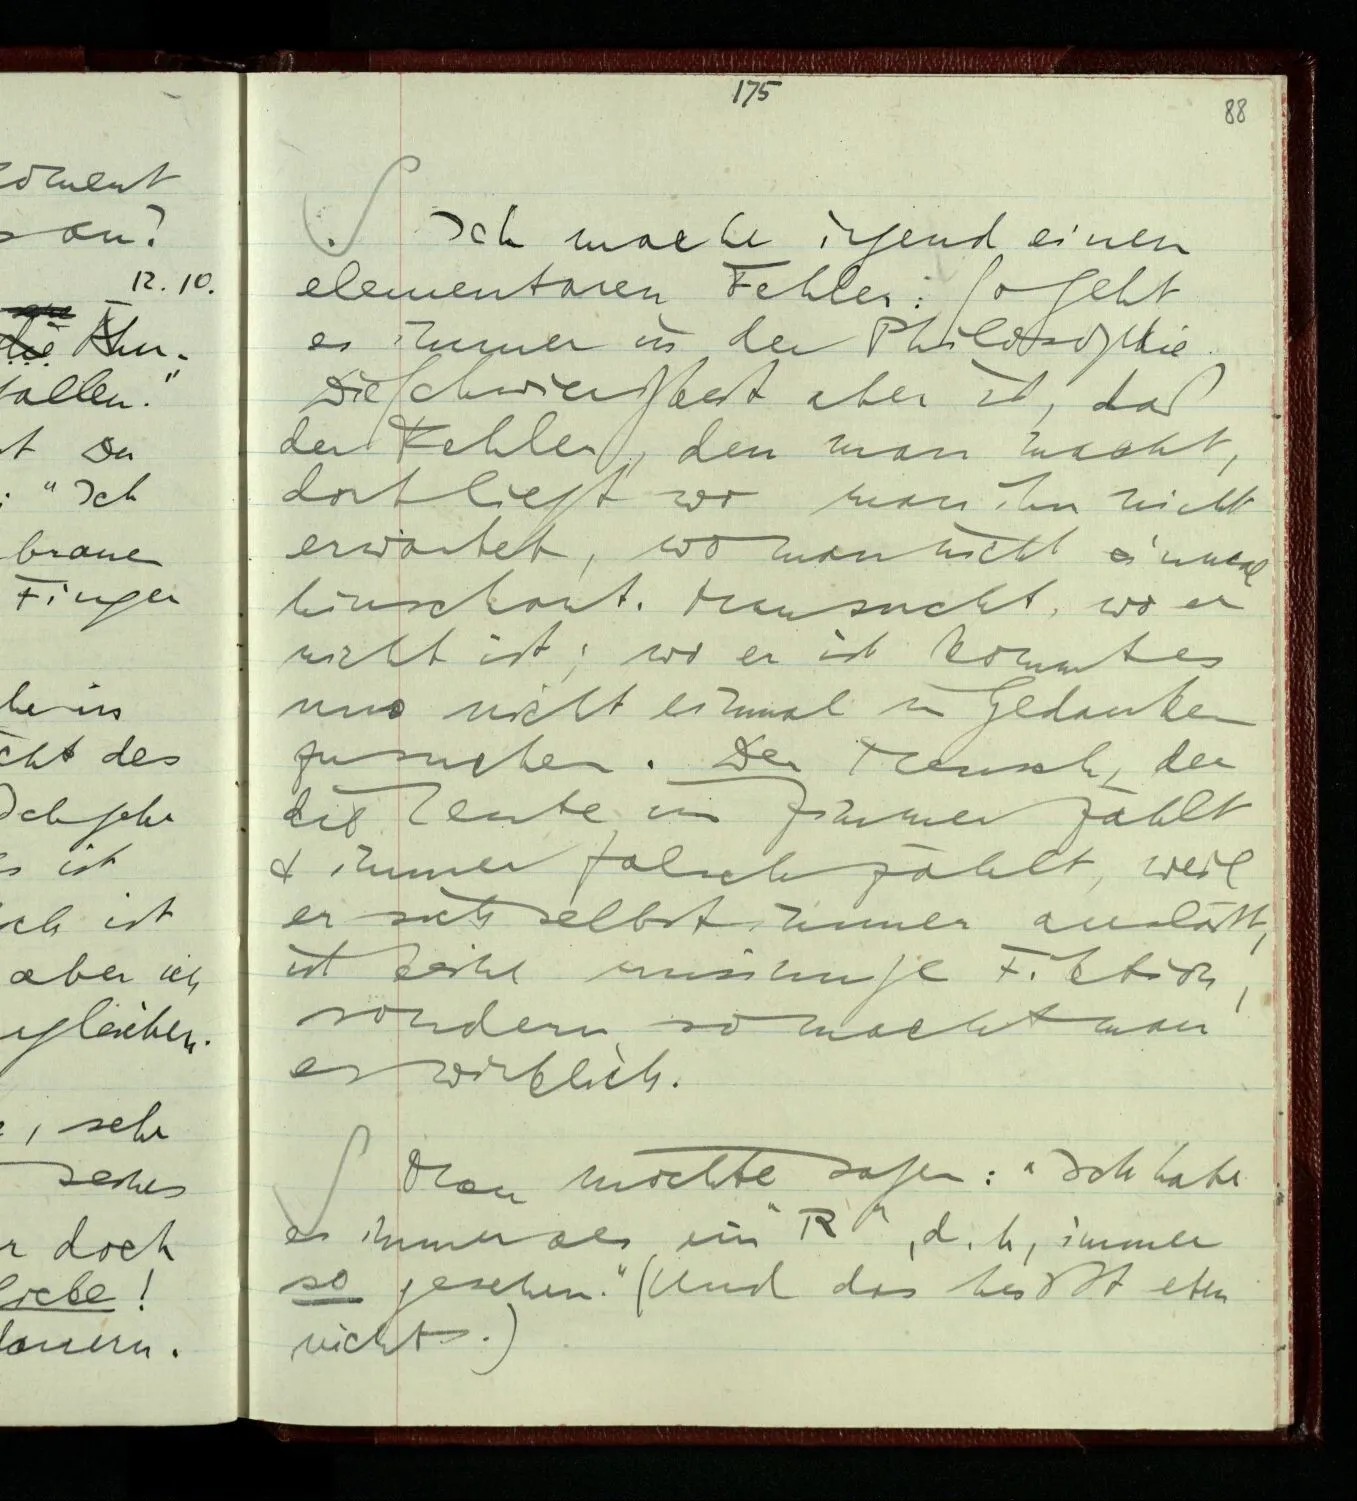 175
88
oment
an?
12.10.
die
fallen."
Du
: "Ich
braue
Finger
cht des
Ich sehe
ist
ich ist
aber ich
rgleichen.
, sehr
seines
r doch
Liebe!
dauern.
∫ Ich mache irgend einen
elementaren Fehler: so geht
es immer in der Philosophie.
Die Schwierigkeit aber ist, daß
der Fehler, den man macht,
dort liegt wo man ihn nicht
erwartet, wo man nicht einmal
hinschaut. Man sucht, wo er
nicht ist; wo er ist kommt es
uns nicht einmal in Gedanken
zu suchen. Der Mensch, der
die Leute im Zimmer zählt
& immer falsch zählt, weil
er sich selbst immer ausläßt,
ist keine unsinnige Fiktion,
sondern so macht man
es wirklich.
∫ Man möchte sagen: "Ich habe
es immer als ein "R", d.h, immer
so gesehen." (Und das heißt eben
nichts.)